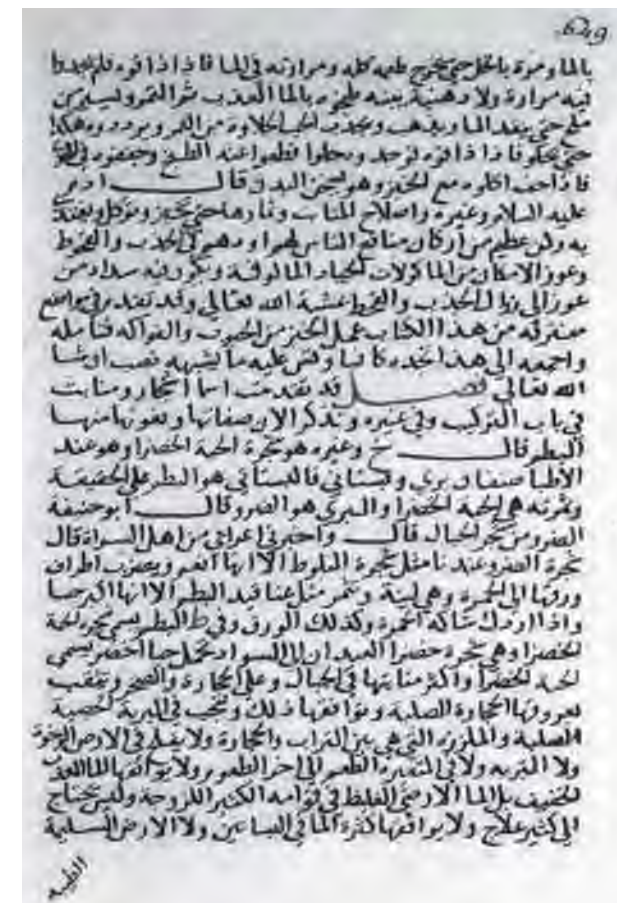 بالما ومرة بالخل حتى يخرج طعمه كله ومرارته في الما فاذا ذاقوه فلم يجدوا
فيه مرارة ولا دهنية بينه طبخوه بالما العذب ثم التمر وليسير من
ملح حتى ينفد الما ويذهب ويجذب الحب الحلاوة من التمر ويردد وهكذا
حتى يحلو فاذا ذاقوه توحد وتحلوا قطعوا عنه الطبخ وجففوه في الهوا
فاذا جف اكلوه مع الخبز وهو يسخن البدن قال ادم
عليه السلام وغيره واصلاح المنابت وثمارها حتى تخبز وتوكل ويغتذا
به ركن عظيم من اركان منافع الناس لهم او دهم في الجدب والقحوط
وعوز الامكان من الماكولات للحياه المالوفة ويكون فيه سداد من
عوز الى زوال الجدب والقحوط بمشية الله تعالى وقد تقدم في مواضع
متفرقه من هذا الكتاب عمل الخبز من الحبوب والفواكه فتامله
واجمعه الى هذا تجده كافيا وقس عليه ما يشبهه تصب ان شا
الله تعالى فصل قد تقدمت اسما اشجار ومنابت
في باب التركيب وفي غيره ونذكر الان صفاتها ونعوتها منها
البطم قال خ وغيره هو شجرة الحبة الخضرا وهو عند
الاطبا صنفان بري وبستاني فالبستاني هو البطم على الحقيقة
وثمرته هي الحبة الخضرا والبري هو الضرو قال ابو حنيفة
الضرو من شجر الجبال قال واخبرني اعرابي من اهل السراة قال
شجرة الضرو عندنا مثل شجرة البلوط الا انها انعم ويضرب اطراف
ورقها الى الحمرة وهي لينة وتثمر مثل عناقيد البطم الا انها اكبر حبا
واذا ادرك شاكه الحمرة وكذلك الورق وفي ط البطم يسمى شجره الحبة
الخضرا وهي شجرة خضرا العيدان الى السواد تحمل حبا اخضر يسمى
الحبه الخضرا واكثر منابتها في الجبال وعلى الحجارة والصخر وتثقب
بعروقها الحجارة الصلبة وتوافقها ذلك وتنجب في التربة الخصبة
الصلبة والملززه التي هي بين التراب والحجارة ولا يفلح في الارض الرخوة
ولا النزبه ولا في المتغيره الطعم الى اخر الطعوم ولا يوافقها الما العذب
الخفيف بل الما الارضي الغليظ في قوامه الكثير اللزوجة وليس يحتاج
الى كثير علاج ولا يوافقها كثرة الما في البساتين ولا الارض السليمة
الطيبه